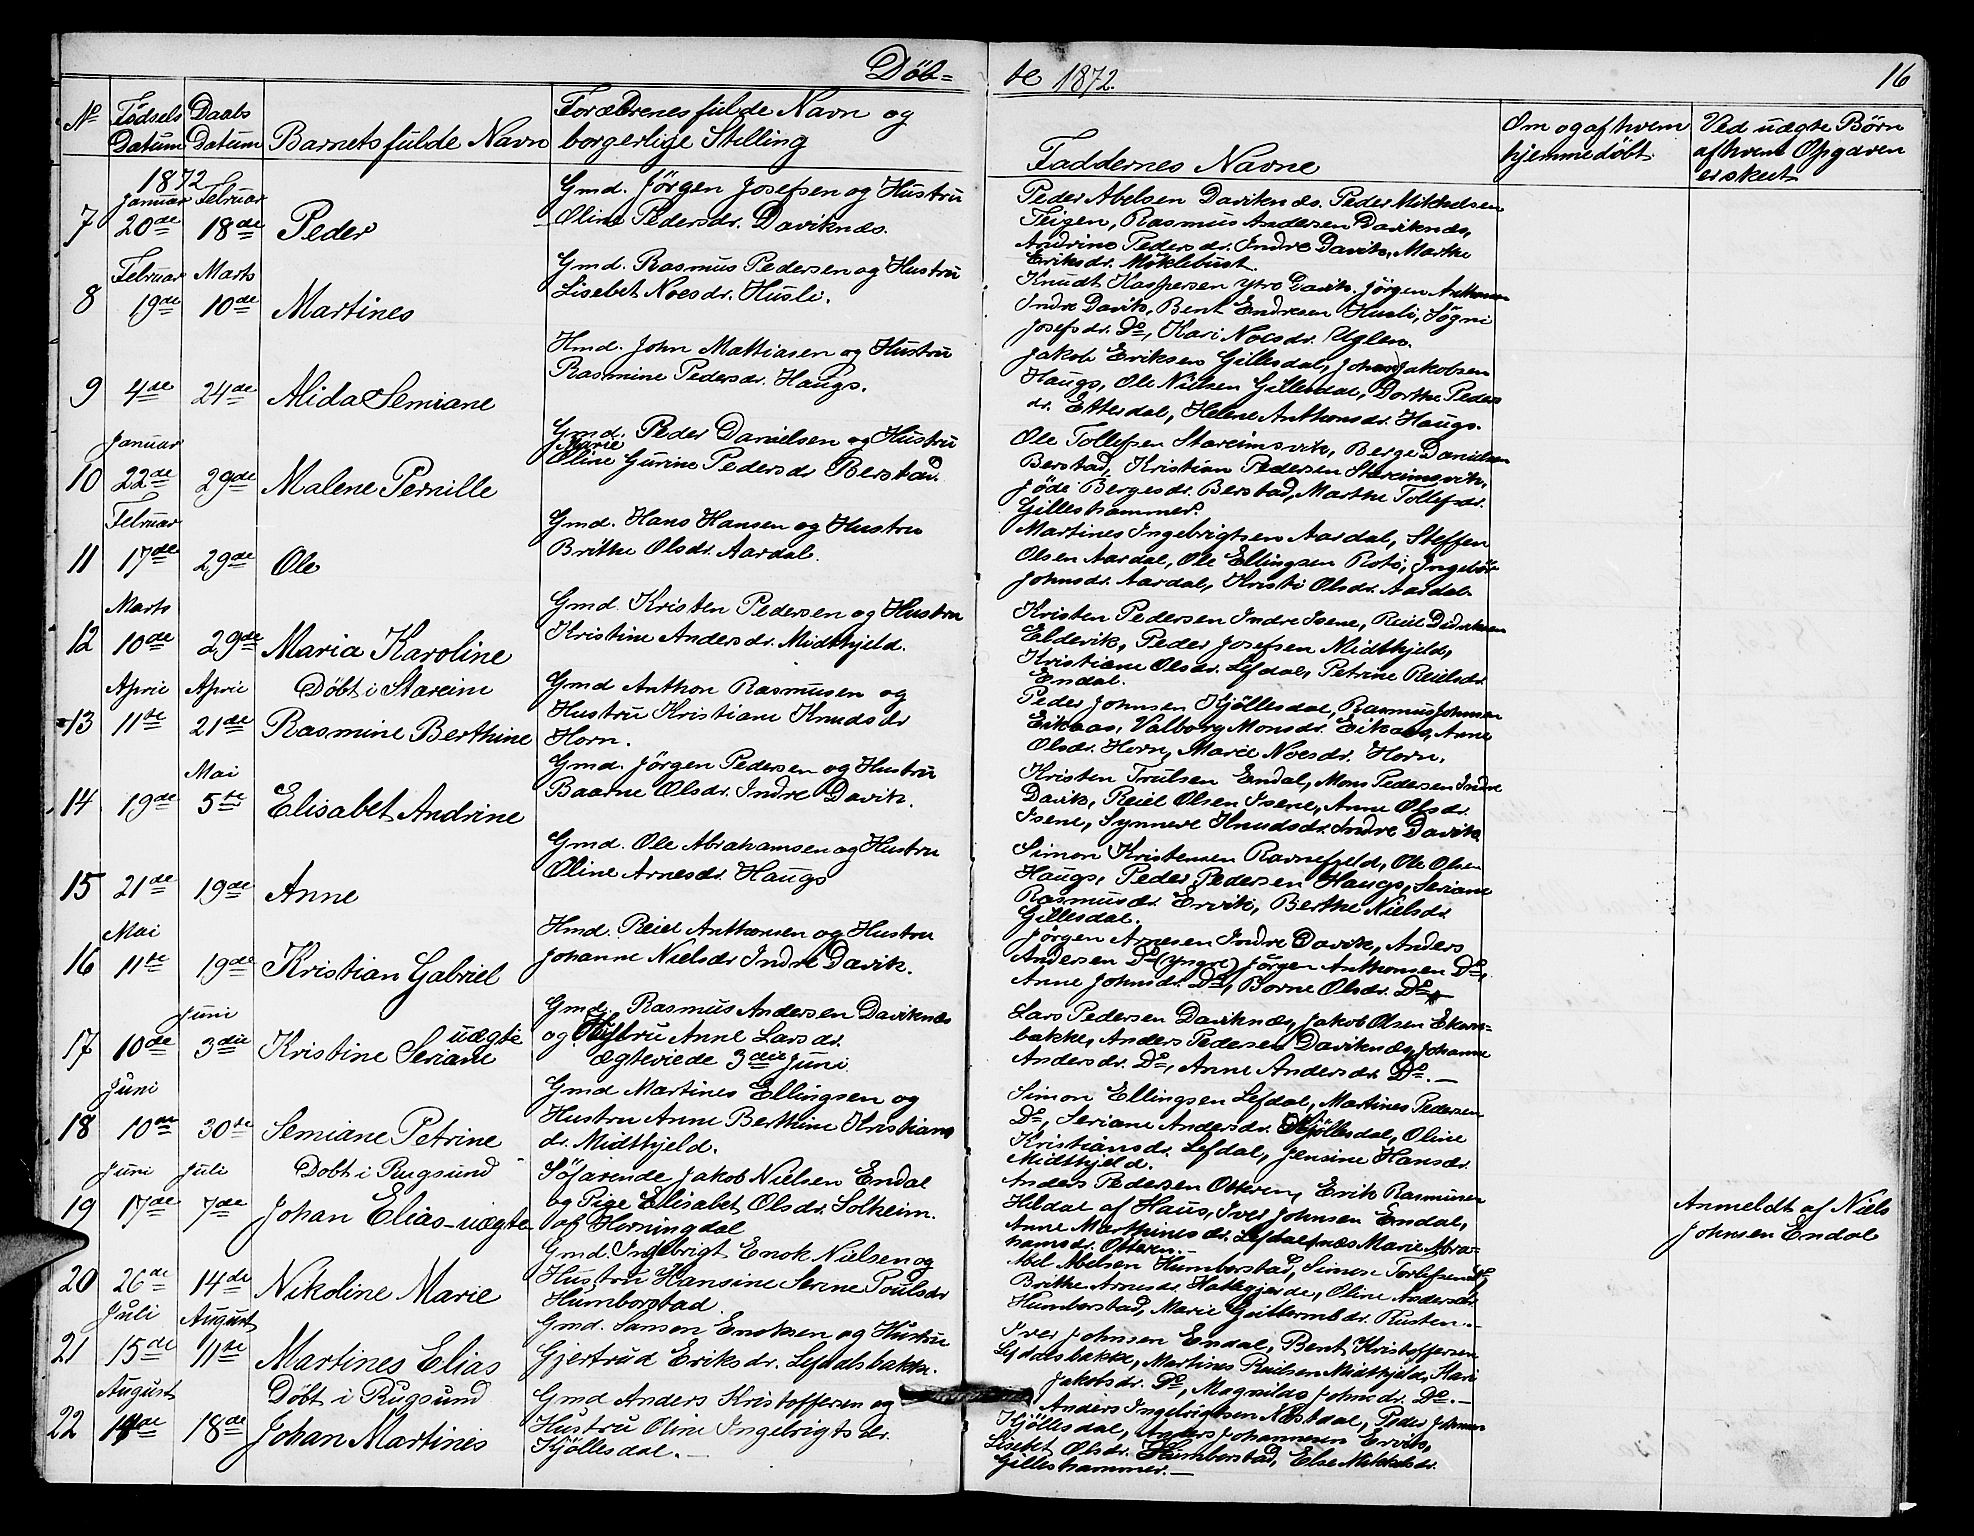 Døb-
te 1872.
16
No
Fødsels Datum
Daabs Datum
Barnets fulde Navn
Forældrenes fulde Navn og borgerlige Stilling
Faddernes Navne
Om og af hvem hjemmedøbt
Ved uægte Børn af hvem Opgaven er skeet
1872
Januar Februar
7 20de 18de Peder
Gmd. Jörgen Josefsen og Hustru
Oline Pedersdr. Daviknæs.
Peder Abelsen Daviknæs. Peder Mikkelsen
Teigen, Rasmus Andersen Daviknæs,
Andrine Pedersdr. Indre Davik, Marthe
Eriksdr. Myklebust.
Februar Marts
8 19de 10de Martines
Gmd. Rasmus Pedersen og Hustru
Lisebet Noesdr. Husli.
Knudt Kaspersen ytre Davik. Jörgen Anthonsen
Indre Davik, Bent Endresen Husli, Søgni
Josefsdr. Do, Kari Noesdr. Uglen.
9 4de 24de Alida Semiane
Hmd. John Mattiasen og Hustru
Rasmine Pedersdr. Haugs.
Jakob Eriksen Gillesdal, Johan Jakobsen
Haugs, Ole Nielsen Gillesdal, Dorthe Peders
dr. Ettesdal, Helene Anthonsdr. Haugs.
Januar
10 22de 29de Malene Pernille
Gmd. Peder Danielsen og Hustru
Marie
Oline Gurine Pedersd Berstad.
Ole Tollefsen Stareimsvik, Berge Danielsen
Berstad, Kristian Pedersen Stareimsvik,
Jöde Bergesdr. Berstad, Marthe Tollefsdr.
Gilleshammer.
Februar
11 17de 29de Ole
Gmd. Hans Hansen og Hustru
Brithe Olsdr. Aardal.
Martines Ingebrigtsen Aardal, Steffen
Olsen Aardal, Ole Ellingsen Rotö, Ingebör
Johnsdr. Aardal, Kristi Olsdr. Aardal.
Marts
12 10de 29de Maria Karoline
Gmd. Kristen Pedersen og Hustru
Kristine Andersdr. Midthjeld.
Kristen Pedersen Indre Isene, Reiel Didriksen
Eldevik, Peder Josefsen Midthjeld,
Kristiane Olsdr. Lefdal, Petrine Reielsdr.
Endal.
April April Døbt i Stareim
13 11te 21de Rasmine Berthine
Gmd Anthon Rasmusen og
Hustru Kristiane Knudsdr
Horn.
Peder Johnsen Hjöllesdal, Rasmus Johnsen
Eikaas, Valborg Monsdr. Eikaas, Anne
Olsdr. Horn, Marie Noesdr. Horn.
Mai
14 19de 5te Elisabet Andrine
Gmd. Jörgen Pedersen og Hustru
Baarne Olsdr. Indre Davik.
Kristen Trulsen Endal, Mons Pedersen Indre
Davik, Reiel Olsen Isene, Anne Olsdr.
Isene, Synneve Knudsdr. Indre Davik
15 21de 19de Anne
Gmd. Ole Abrahamsen og Hustru
Oline Arnesdr. Haugs
Simon Kristensen Ravnefjeld, Ole Olsen
Haugs, Peder Pedersen Haugs, Seriane
Rasmusdr. Ervik, Berthe Nielsdr.
Gillesdal.
Mai
16 11te 19de Kristian Gabriel
Hmd. Reiel Anthonsen og Hustru
Johanne Nielsdr Indre Davik.
Jörgen Arnesen Indre Davik, Anders
Andersen Do (yngre) Jörgen Anthonsen Do,
Anne Johnsdr. Do, Borne Olsdr. Do.
Juni
17 10de 3die Kristine Seriane uægte
Gmd. Rasmus Andersen Daviknæs
og Hustru Anne Larsdr.
ægteviede 3die Juni
Lars Pedersen Daviknæs, Jakob Olsen Ekorn-
bakke, Anders Pedersen Daviknæs, Johanne
Andersdr. Do, Anne Andersdr. Do.
Juni
18 10de 30te Semiane Petrine
Gmd Martines Ellingsen og
Hustru Anne Berthine Kristians
dr. Midthjeld.
Simon Ellingsen Lefdal, Martines Pedersen
Do, Seriane Andersdr. Hjöllesdal, Oline
Kristiansdr. Lefdal, Jensine Hansdr.
Midthjeld.
Juni Juli Døbt i Rugsund
19 17de 7de Johan Elias - uægte
Söfarende Jakob Nielsen Endal
og Pige Elisabet Olsdr. Solheim.
af Horningdal
Anders Pedersen Otteren, Erik Rasmusen
Heldal af Haus, Iver Johnsen Endal,
Anne Marthinesdr. Lefdalsnæs Marie Abra-
hamsdr. Otteren.
Anmeldt af Niels
Johnsen Endal
20 26de 14de Nikoline Marie
Gmd. Ingebrigt Enok Nielsen og
Hustru Hansine Serine Poulsdr
Humborstad
Abel Abelsen Humborstad, Simon Torlefsen Do
Brithe Arnesdr. Hatlegjerde, Oline Andersdr.
Humborstad, Marie Guttormsdr. Rusten.
Juli August
21 15de 11te Martines Elias
Gmd. Samson Enoksen og Hustru
Gjertrud Eriksdr. Lefdalsbakke.
Iver Johnsen Endal, Bent Kristoffersen
Lefdalsbakke, Martines Reielsen Midthjeld, Kari
Jakobsdr. Do, Magnilda Johnsdr. Do.
August Døbt i Rugsund
22 14de 18de Johan Martines
Gmd Anders Kristoffersen og
Hustru Oline Ingebrigtsdr.
Hjöllesdal.
Anders Ingebrigtsen Nestdal, Peder Johnsen
Hjöllesdal, Anders Johannesen Ervik,
Lisebet Olsdr. Humborstad, Else Mikkelsdr.
Gilleshammer.